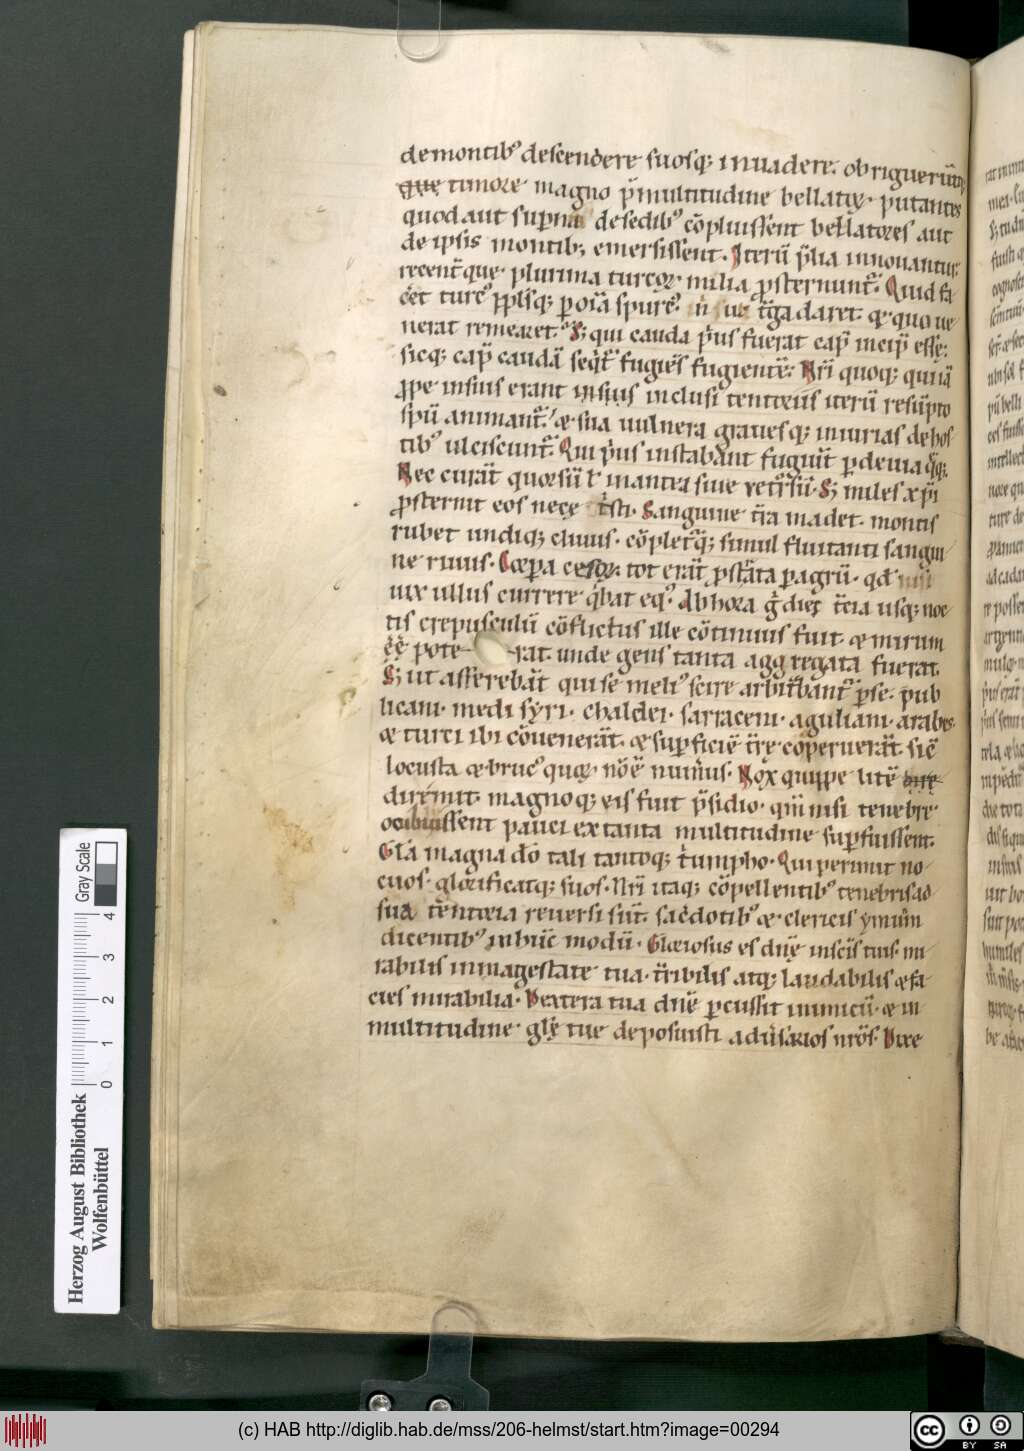 de montibꝰ descendere suosq; inuadere. obriguerūt
que timore magno p̄ multitudine bellatoꝝ. putantes
quod aut superna de sedibꝰ cōpluissent bellatores aut
de ipsis montibꝫ emersissent. Iterū p̄lia innouantur.
recent̄que plurima turcoꝝ milia ꝓsternunt̄. Quid fa
c̄et turcꝰ ꝓpl̄sq; ꝑ oīa spurcꝰ. n̄ t̄ga daret. & quo ue
nerat remearet. S; qui cauda p̄us fuerat cap̄ incip̄ esse.
sicq; cap̄ caudā seq̄t̄ fugiēs fugientē. Nr̄i quoq; qui iā
ꝓpe in suis erant inclusi tentoriis iterū resūpto
spū animant̄. & sua uulnera grauesq; iniurias de hos
tibꝰ ulciscunt̄. Qui p̄us instabant fugiūt ꝑ deuia q̄q;
Nec curāt quorsū ł in antea siue retrorsū. S; miles xp̄i
ꝓsternit eos nece t̄sti. Sanguine t̄ra madet. montis
rubet undiq; cliuus. cōplet̄q; simul fluitanti sangui
ne riuus. Corpa cesoꝝ tot erāt ꝓstrāta ꝑ agrū. qd̄ nisi
uix ullus currere q̄bat eqꝰ. Ab hora g̊ diei t̄cia usq; noc
tis crepusculū cōflictus ille cōtinuus fuit & mirum
ēē pote rat. unde gens tanta aggregata fuerat.
S; ut asserebāt qui se meliꝰ scire arbit̄bant̄ p̄se. pub
licani. medi syri. chaldei. sarraceni. agulani. arabes.
& turci ibi cōuenerāt. & superficiē t̄re cooperuerāt. sic̄
locusta & brucꝰ quoꝝ nō ē num̄us. Nox quippe litē dire
diremit. magnoq; eis fuit p̄sidio. quī nisi tenebre.
occubuissent pauci ex tanta multitudine superfuissent.
Gl̄a magna dō tali tantoq; t̄umpho. Qui perimit no
cuos. glorificatq; suos. Nr̄i itaq; cōpellentibꝰ tenebris ad
sua tentoria reuersi sūt. sac̄dotibꝰ & clericis ymnum
dicentibꝰ in hūc modū. Gloriosus es dn̄e in scīs tuis. mi
rabilis in magestate tua. t̄ribilis atq; laudabilis & fa
cies mirabilia. Dextera tua dn̄e ꝑcussit inimicū. & in
multitudine glę tue deposuisti aduersarios nr̄os. Dixe
Herzog August Bibliothek
Wolfenbüttel
Gray Scale
0 1 2 3 4
(c) HAB http://diglib.hab.de/mss/206-helmst/start.htm?image=00294
cc BY SA